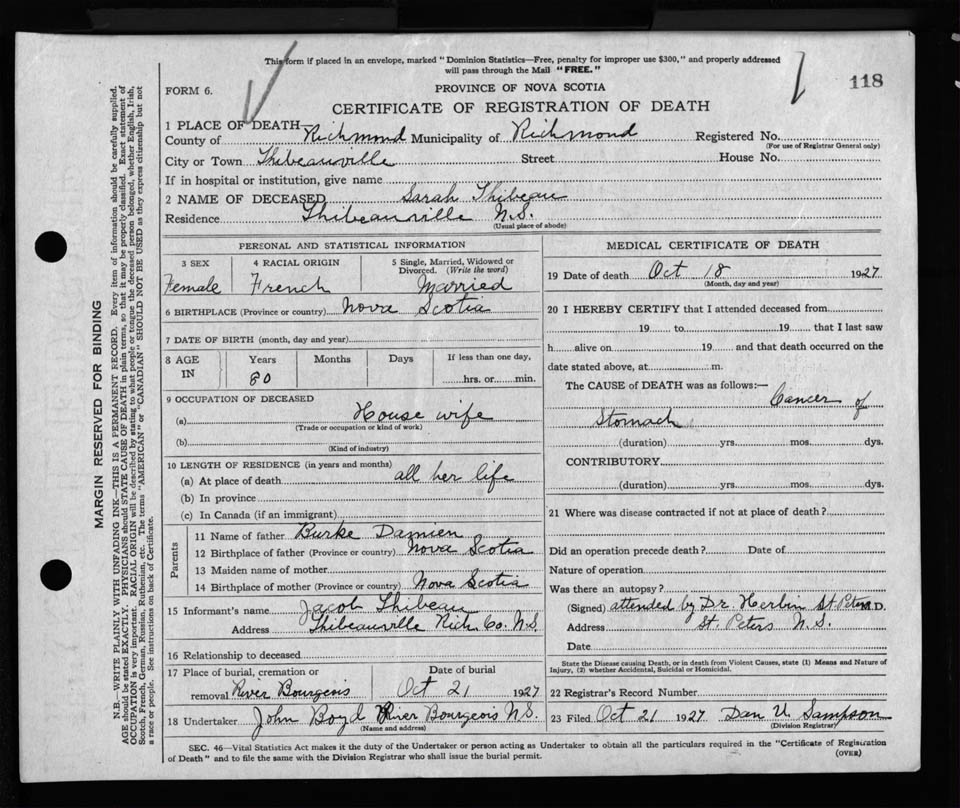 This form if placed in an envelope, marked "Dominion Statistics—Free, penalty for improper use $300," and properly addressed
will pass through the Mail "FREE."
118
FORM 6.
PROVINCE OF NOVA SCOTIA
CERTIFICATE OF REGISTRATION OF DEATH
1 PLACE OF DEATH—
County of Richmond Municipality of Richmond Registered No.
(For use of Registrar General only)
City or Town Thibeauville Street House No.
If in hospital or institution, give name
2 NAME OF DECEASED Sarah Thibeau
Residence Thibeauville N.S.
(Usual place of abode)
PERSONAL AND STATISTICAL INFORMATION
3 SEX 4 RACIAL ORIGIN 5 Single, Married, Widowed or
Divorced. (Write the word)
Female French Married
6 BIRTHPLACE (Province or country) Nova Scotia
7 DATE OF BIRTH (month, day and year)
8 AGE Years Months Days If less than one day,
IN 80 hrs. or min.
9 OCCUPATION OF DECEASED
(a) House wife
(Trade or occupation or kind of work)
(b)
(Kind of industry)
10 LENGTH OF RESIDENCE (in years and months)
(a) At place of death all her life
(b) In province
(c) In Canada (if an immigrant)
Parents
11 Name of father Burke Damien
12 Birthplace of father (Province or country) Nova Scotia
13 Maiden name of mother
14 Birthplace of mother (Province or country) Nova Scotia
15 Informant's name Jacob Thibeau
Address Thibeauville Rich Co. N.S.
16 Relationship to deceased
17 Place of burial, cremation or Date of burial
removal River Bourgeois Oct 21 1927
18 Undertaker John Boyd River Bourgeois N.S.
(Name and address)
MEDICAL CERTIFICATE OF DEATH
19 Date of death Oct 18 1927
(Month, day and year)
20 I HEREBY CERTIFY that I attended deceased from
19 to 19 that I last saw
h alive on 19 and that death occurred on the
date stated above, at m.
The CAUSE of DEATH was as follows:—
Cancer of
Stomach
(duration) yrs. mos. dys.
CONTRIBUTORY
(duration) yrs. mos. dys.
21 Where was disease contracted if not at place of death?
Did an operation precede death? Date of
Nature of operation
Was there an autopsy?
(Signed) attended by Dr. Herbin St Peters M.D.
Address St. Peters N.S.
Date
State the Disease causing Death, or in death from Violent Causes, state (1) Means and Nature of
Injury, (2) whether Accidental, Suicidal or Homicidal.
22 Registrar's Record Number
23 Filed Oct 21 1927 Dan U Sampson
(Division Registrar)
SEC. 46—Vital Statistics Act makes it the duty of the Undertaker or person acting as Undertaker to obtain all the particulars required in the "Certificate of Registration
of Death" and to file the same with the Division Registrar who shall issue the burial permit.
(OVER)
MARGIN RESERVED FOR BINDING
N.B.—WRITE PLAINLY WITH UNFADING INK—THIS IS A PERMANENT RECORD. Every item of information should be carefully supplied.
AGE should be stated EXACTLY. PHYSICIANS should STATE CAUSE OF DEATH in plain terms, so that it may be properly classified. Exact statement of
OCCUPATION is very important. RACIAL ORIGIN will be described by stating to what people or tongue the deceased person belonged, whether English, Irish,
Scotch, French, German, Russian, Ruthenian, etc. The terms "AMERICAN" or "CANADIAN" SHOULD NOT BE USED as they express citizenship but not
a race or people. See instructions on back of Certificate.